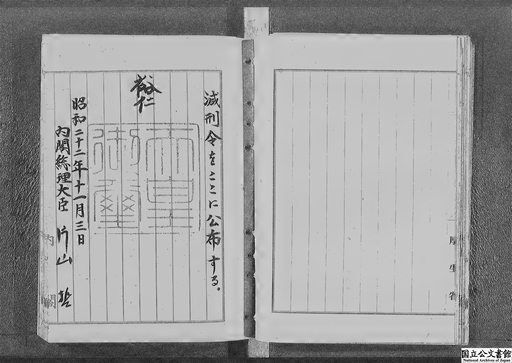 減刑令をここに公布する。
裕仁
天皇御璽
昭和二十二年十一月三日
内閣総理大臣 片山 哲
内閣
厚生省
国立公文書館
National Archives of Japan